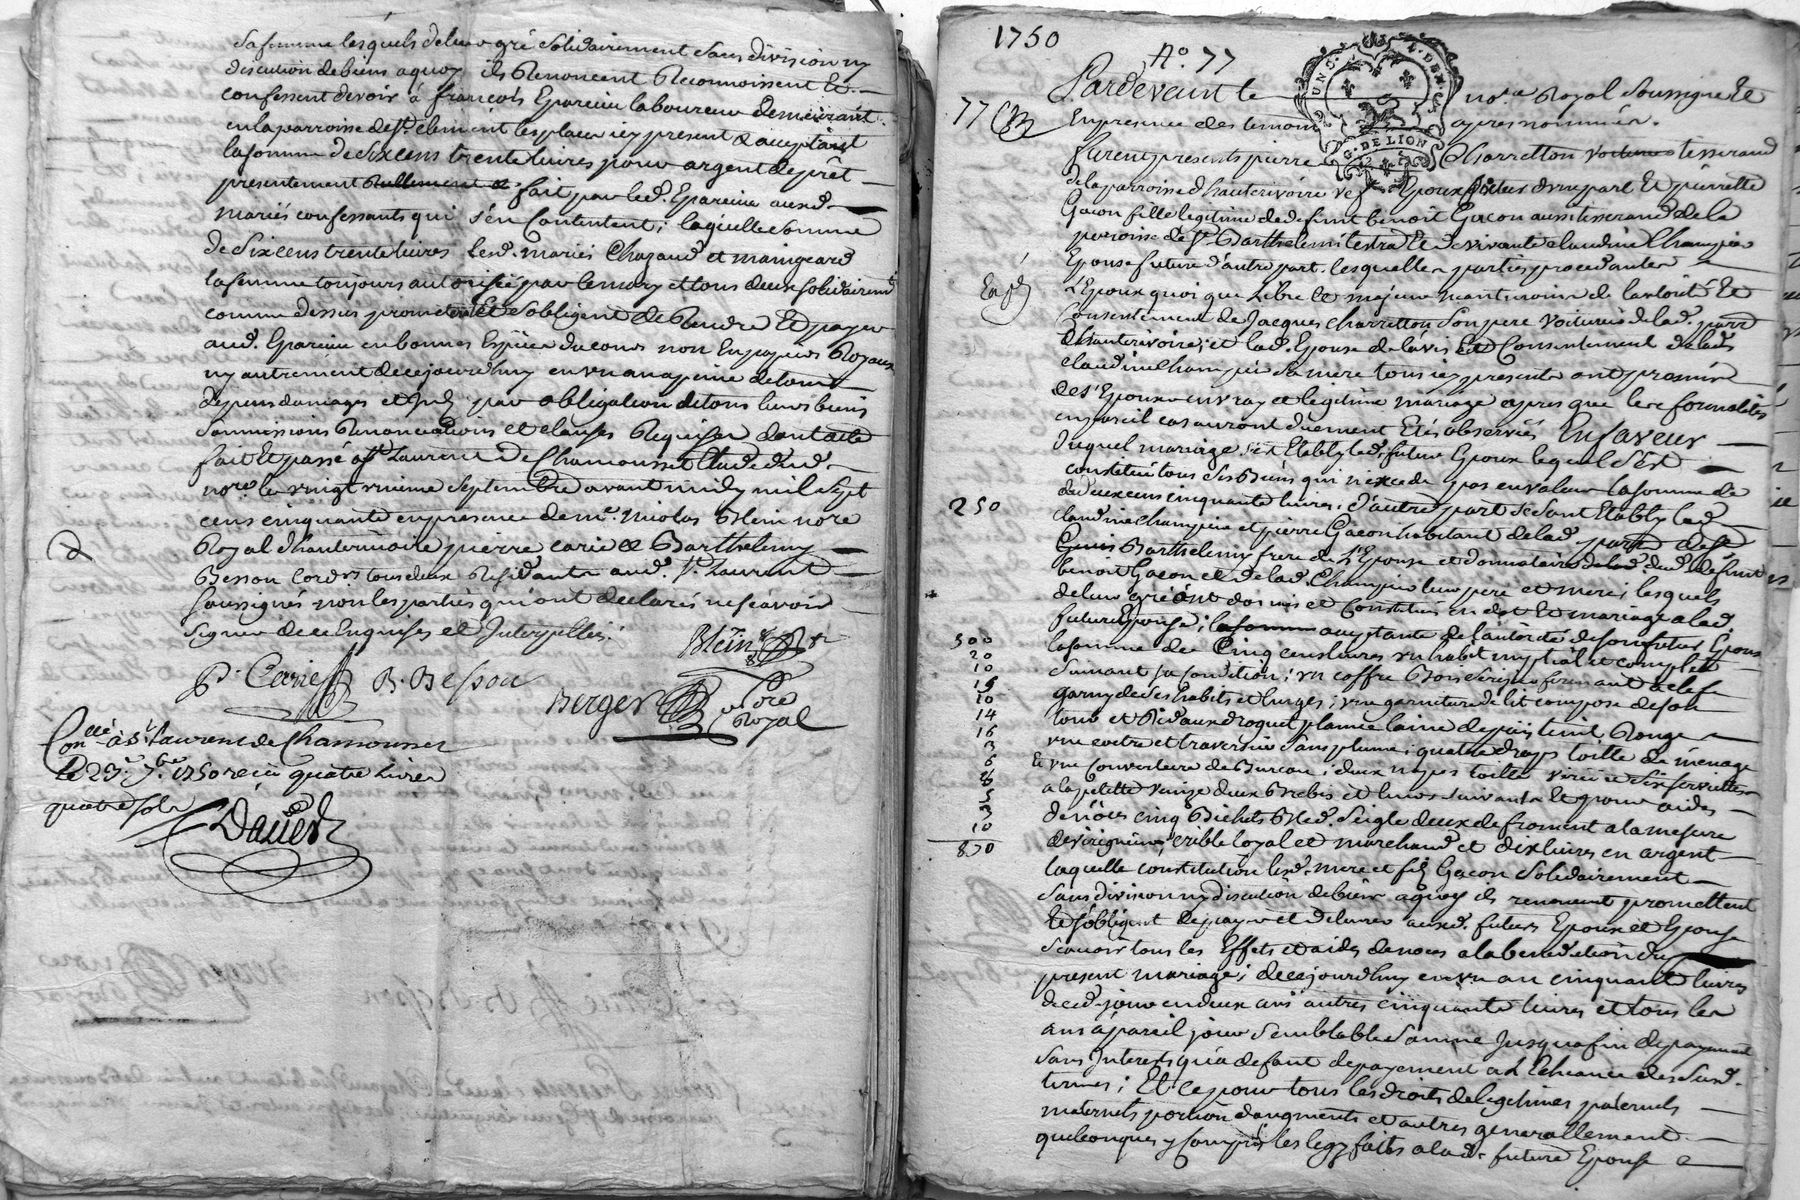 sa femme lesquels de leur gré solidairement sans division ny
discution de biens a quoy ils Renoncent Reconnoissent Et
confessent devoir à françois Epareinu laboureur demeurant
en la parroisse de St. clement les places icy present & acceptant
la somme de six cens trente livres pour argent de prêt
presentement Reellement & fait par led. Epareinu auxd.
mariés confessants qui s'en Contentent; laquelle somme
de six cens trente livres lesd. mariés Chazaud et maingeard
la femme toujours autorisée par le mary et tous deux solidairemt.
comme dessus promettent Et s'obligent de Rendre Et payer
aud. Epareinu en bonnes Espèces du cours non En papiers Royaux
ny autrement de ce jourdhuy en un an a peine de tous
depens domages et par obligation de tous leurs biens
soumissions Renonciations et clauses Requises dont acte
fait Et passé a St. Laurent De Chamousset Etude dud.
nore. le vingt unieme Septembre avant midy mil sept
cens cinquante en presence de me. Nicolas Blein nore
Royal d'hauterivoire pierre carie & Barthelemy
Besson cord.rs tous deux Residants aud. St. Laurent
soussignés non les parties qui ont declarés ne sçavoir
signer de ce Enquises et Interpellés.
Blein
P. Carie B. Besson
Berger nore Royal
Conllé à St. Laurent de Chamousset
le 23e. 7bre 1750 reçu quatre livres
quatre sols
1750
No. 77
Pardevant le nore. Royal soussigné Et
77
En presence des temoins apres nommés.
G. DE LION
furent presents pierre Charretton tisserand
de la parroisse d'hauterivoire Epoux futur d'une part Et pierrette
Gacon fille legitime de defunt benoit Gacon aussi tisserand de la
paroisse de St. Barthelemi lestra Et de vivante claudine Champier
Epouse future d'autre part. lesquelles parties procedantes
L'Epoux quoi que Libre Et majeur neantmoins de l'autorité Et
Consentement de Jacques charretton son pere voiturier de lad. parr.
D'hauterivoire; et lad. Epouse de l'avis Et Consentement de lad.
claudine Champier sa mere tous icy presents ont promis
de s'Epouser en vray et legitime mariage apres que les formalités
en pareil cas auront duement Etés observées En faveur
duquel mariage s'est Etably led. futur Epoux lequel s'est
constitué tous ses Biens qui n'excede pas en valeur la somme de
250
de deux cens cinquante livres, d'autre part se sont Etably lad.
claudine champier et pierre Gacon habitant de lad. parr. de St.
Barthelemy frere de l'Epouse et donnataire dud. défunt
benoit Gacon et de lad. Champier leur pere et mere; lesquels
de leur gré ont donnés et Constitués en dot Et mariage a lad.
future Epouse; acceptante de l'autorité de son futur Epoux
500
la somme de Cinq cens livres un habit nuptial et complet
20
suivant sa condition; un coffre Bois fermant a clef
10
15
garny de ses habits et linges; une garniture de lit compose de son
10
tour et Rideaux droguet plaine laine de pais teint Rouge
14
16
une coitre et traversin sans plume; quatre draps toille de ménage
3
6
Et une Couverture de Bureau; deux nappes toille six serviettes
a la petitte venize deux Brebis et leurs suivants Et pour aides
3
de nôces cinq Bichets Bled seigle deux de froment a la mesure
10
870
de virigneux crible loyal et marchand et dix livres en argent
laquelle constitution lesd. mere et fils Gacon solidairement
sans division ny discution de biens a quoy ils renoncent promettent
Et s'obligent De payer et delivrer auxd. futurs Epoux et Epouse
sçavoir tous les Effets et aides de noces a la benediction du
present mariage; de ce jourdhuy en un an cinquante livres
de ced. jour en deux ans autres cinquante livres et tous les
ans à pareil jour semblable somme Jusqu'a fin de payement
sans Interests qu'a defaut de payement a l'Echeance desd.
termes; Et ce pour tous les droits de legitimes paternels
maternels portion d'augments et autres generallement
quelconques y compris les legs faits a lad. future Epouse